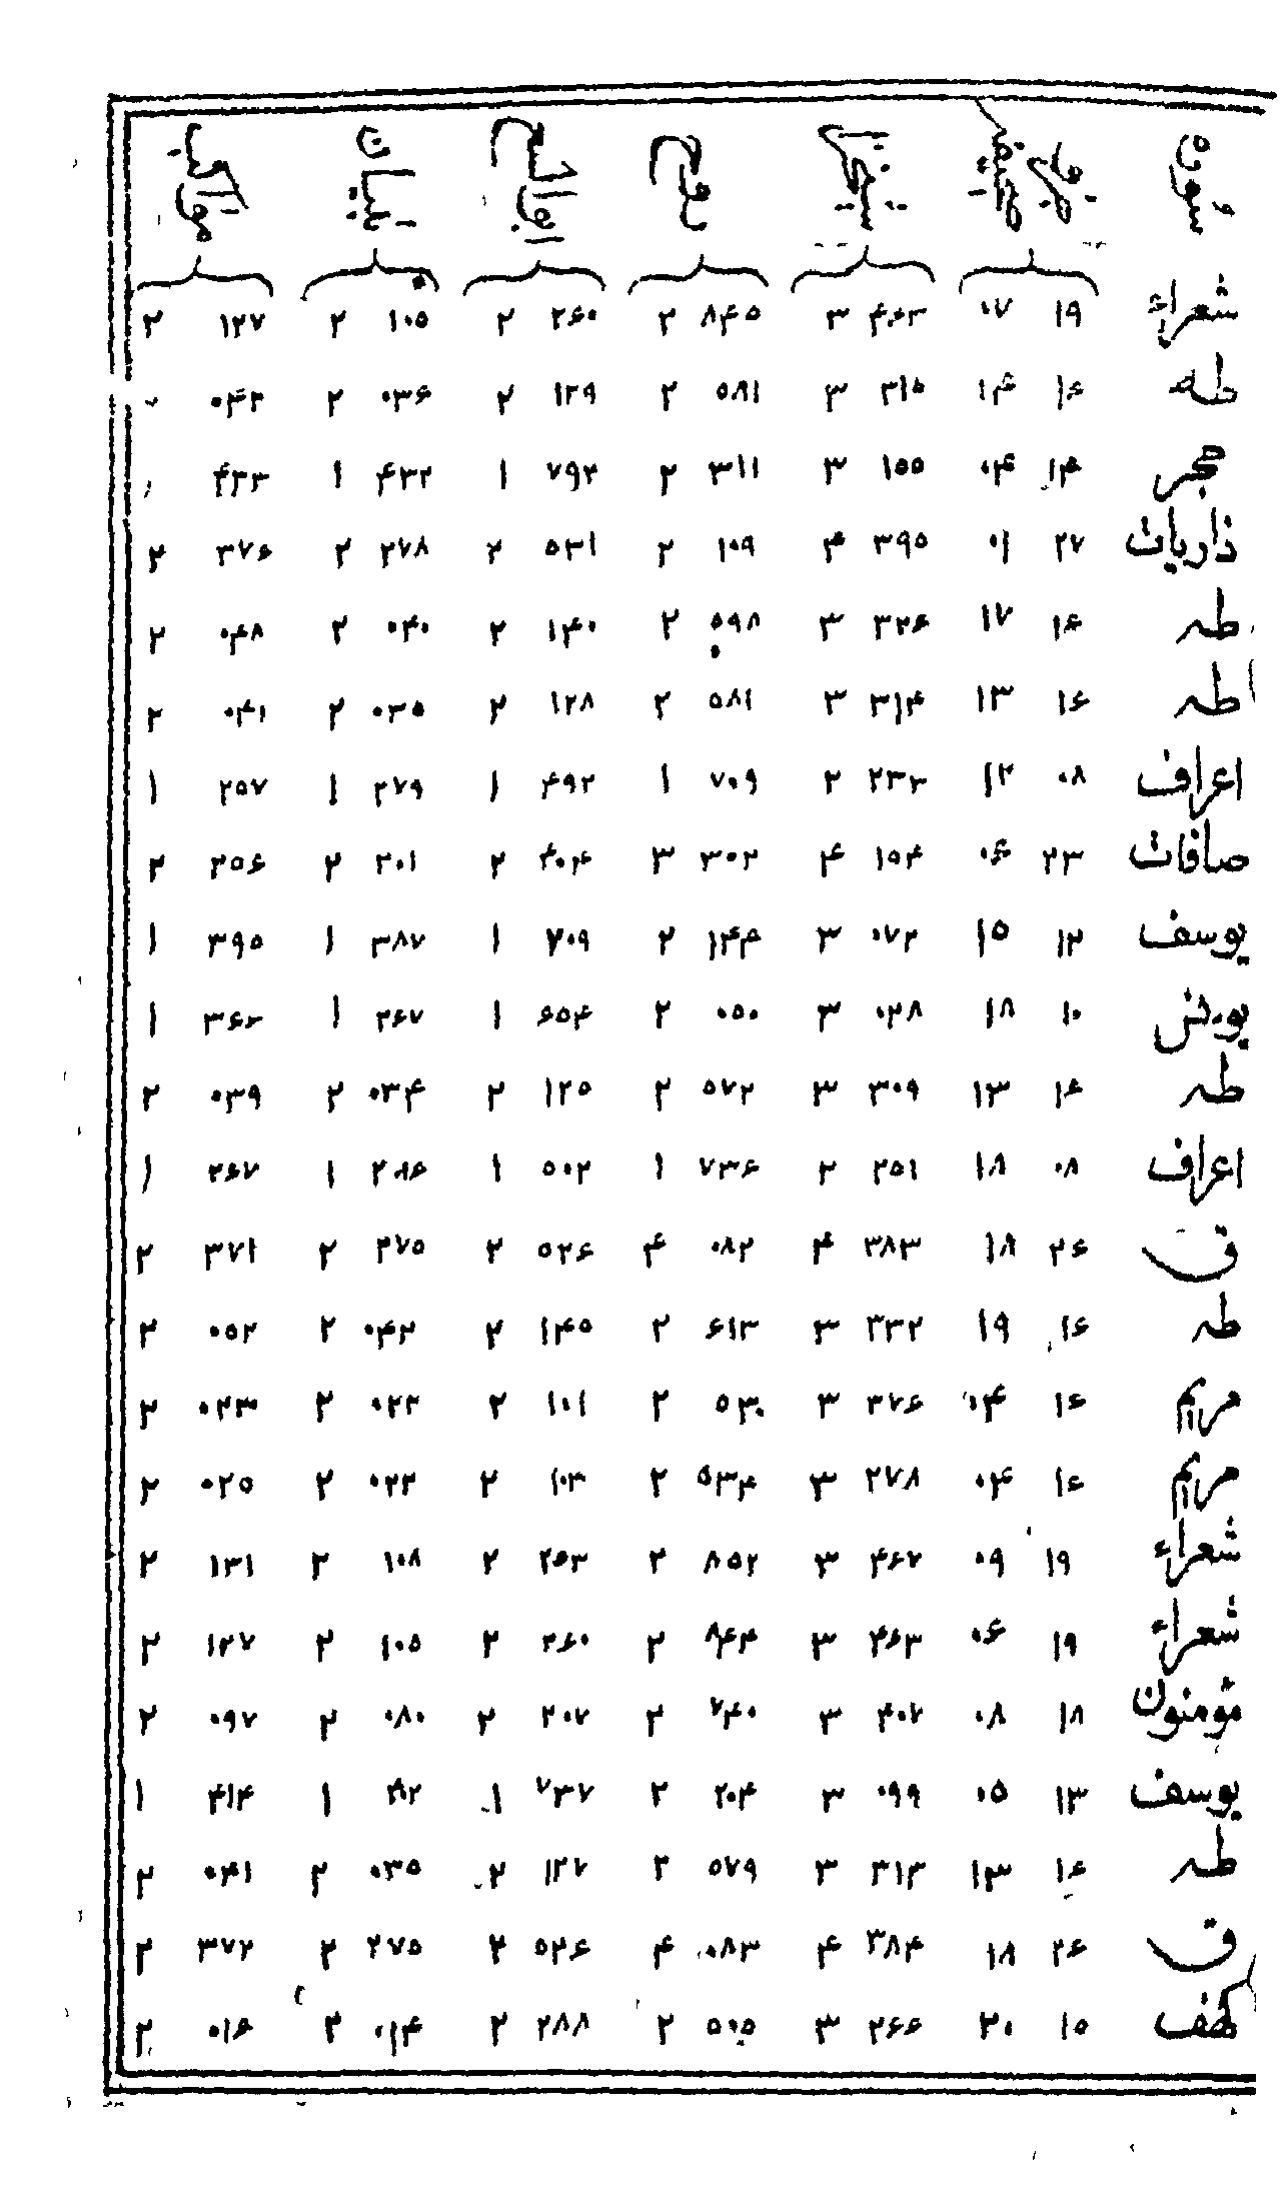 سوره
شعراء ۱۹ ۰۷ ۴۶۳ ۳ ۸۴۵ ۲ ۲۶۰ ۲ ۱۰۵ ۲ ۱۲۷ ۲
طه ۱۶ ۱۴ ۳۱۵ ۳ ۵۸۱ ۲ ۱۲۹ ۲ ۰۳۶ ۲ ۰۴۲
حجر ۱۴ ۰۴ ۱۵۵ ۳ ۳۱۱ ۲ ۷۹۲ ۱ ۴۳۲ ۱ ۴۳۳ ۱
ذاریات ۲۷ ۰۱ ۳۹۵ ۴ ۱۰۹ ۲ ۵۳۱ ۲ ۲۷۸ ۲ ۳۷۶ ۲
طه ۱۶ ۱۷ ۳۲۶ ۳ ۵۹۸ ۲ ۱۴۰ ۲ ۰۴۰ ۲ ۰۴۸ ۲
طه ۱۶ ۱۳ ۳۱۴ ۳ ۵۸۱ ۲ ۱۲۸ ۲ ۰۳۵ ۲ ۰۴۱ ۲
اعراف ۰۸ ۱۲ ۲۳۳ ۲ ۷۰۹ ۱ ۴۹۲ ۱ ۲۷۹ ۱ ۲۵۷ ۱
صافات ۲۳ ۰۶ ۱۵۴ ۴ ۳۰۲ ۳ ۴۰۴ ۲ ۲۰۱ ۲ ۲۵۶ ۲
یوسف ۱۲ ۱۵ ۰۷۲ ۳ ۱۴۴ ۲ ۷۰۹ ۱ ۳۸۷ ۱ ۳۹۵ ۱
یونس ۱۰ ۱۸ ۰۲۸ ۳ ۰۵۰ ۲ ۶۵۴ ۱ ۳۶۷ ۱ ۳۶۲ ۱
طه ۱۶ ۱۳ ۳۰۹ ۳ ۵۷۲ ۲ ۱۲۵ ۲ ۰۳۴ ۲ ۰۳۹ ۲
اعراف ۰۸ ۱۸ ۲۵۱ ۲ ۷۳۶ ۱ ۵۰۲ ۱ ۲۸۶ ۱ ۲۶۷ ۱
ق ۲۶ ۱۸ ۳۸۳ ۴ ۰۸۲ ۴ ۵۲۶ ۲ ۲۷۵ ۲ ۳۷۱ ۲
طه ۱۶ ۱۹ ۳۳۲ ۳ ۶۱۳ ۲ ۱۴۵ ۲ ۰۴۲ ۲ ۰۵۲ ۲
مریم ۱۶ ۰۴ ۲۷۶ ۳ ۵۳۰ ۲ ۱۰۱ ۲ ۰۲۲ ۲ ۰۲۳ ۲
مریم ۱۶ ۰۴ ۲۷۸ ۳ ۵۳۴ ۲ ۱۰۳ ۲ ۰۲۳ ۲ ۰۲۵ ۲
شعراء ۱۹ ۰۹ ۴۶۷ ۳ ۸۵۲ ۲ ۲۵۳ ۲ ۱۰۸ ۲ ۱۳۱ ۲
شعراء ۱۹ ۰۶ ۴۶۳ ۳ ۸۴۴ ۲ ۲۶۰ ۲ ۱۰۵ ۲ ۱۲۷ ۲
مؤمنون ۱۸ ۰۸ ۴۰۷ ۳ ۷۴۰ ۲ ۲۰۷ ۲ ۰۸۰ ۲ ۰۹۷ ۲
یوسف ۱۳ ۰۵ ۰۹۹ ۳ ۲۰۴ ۲ ۷۳۷ ۱ ۱ ۴۱۴ ۱
طه ۱۶ ۱۳ ۳۱۳ ۳ ۵۷۹ ۲ ۱۲۷ ۲ ۰۳۵ ۲ ۰۴۱ ۲
ق ۲۶ ۱۸ ۳۸۴ ۴ ۰۸۳ ۴ ۵۲۶ ۲ ۲۷۵ ۲ ۳۷۲ ۲
کهف ۱۵ ۲۰ ۲۶۶ ۳ ۵۰۵ ۲ ۲۸۸ ۲ ۰۱۴ ۲ ۰۱۶ ۲